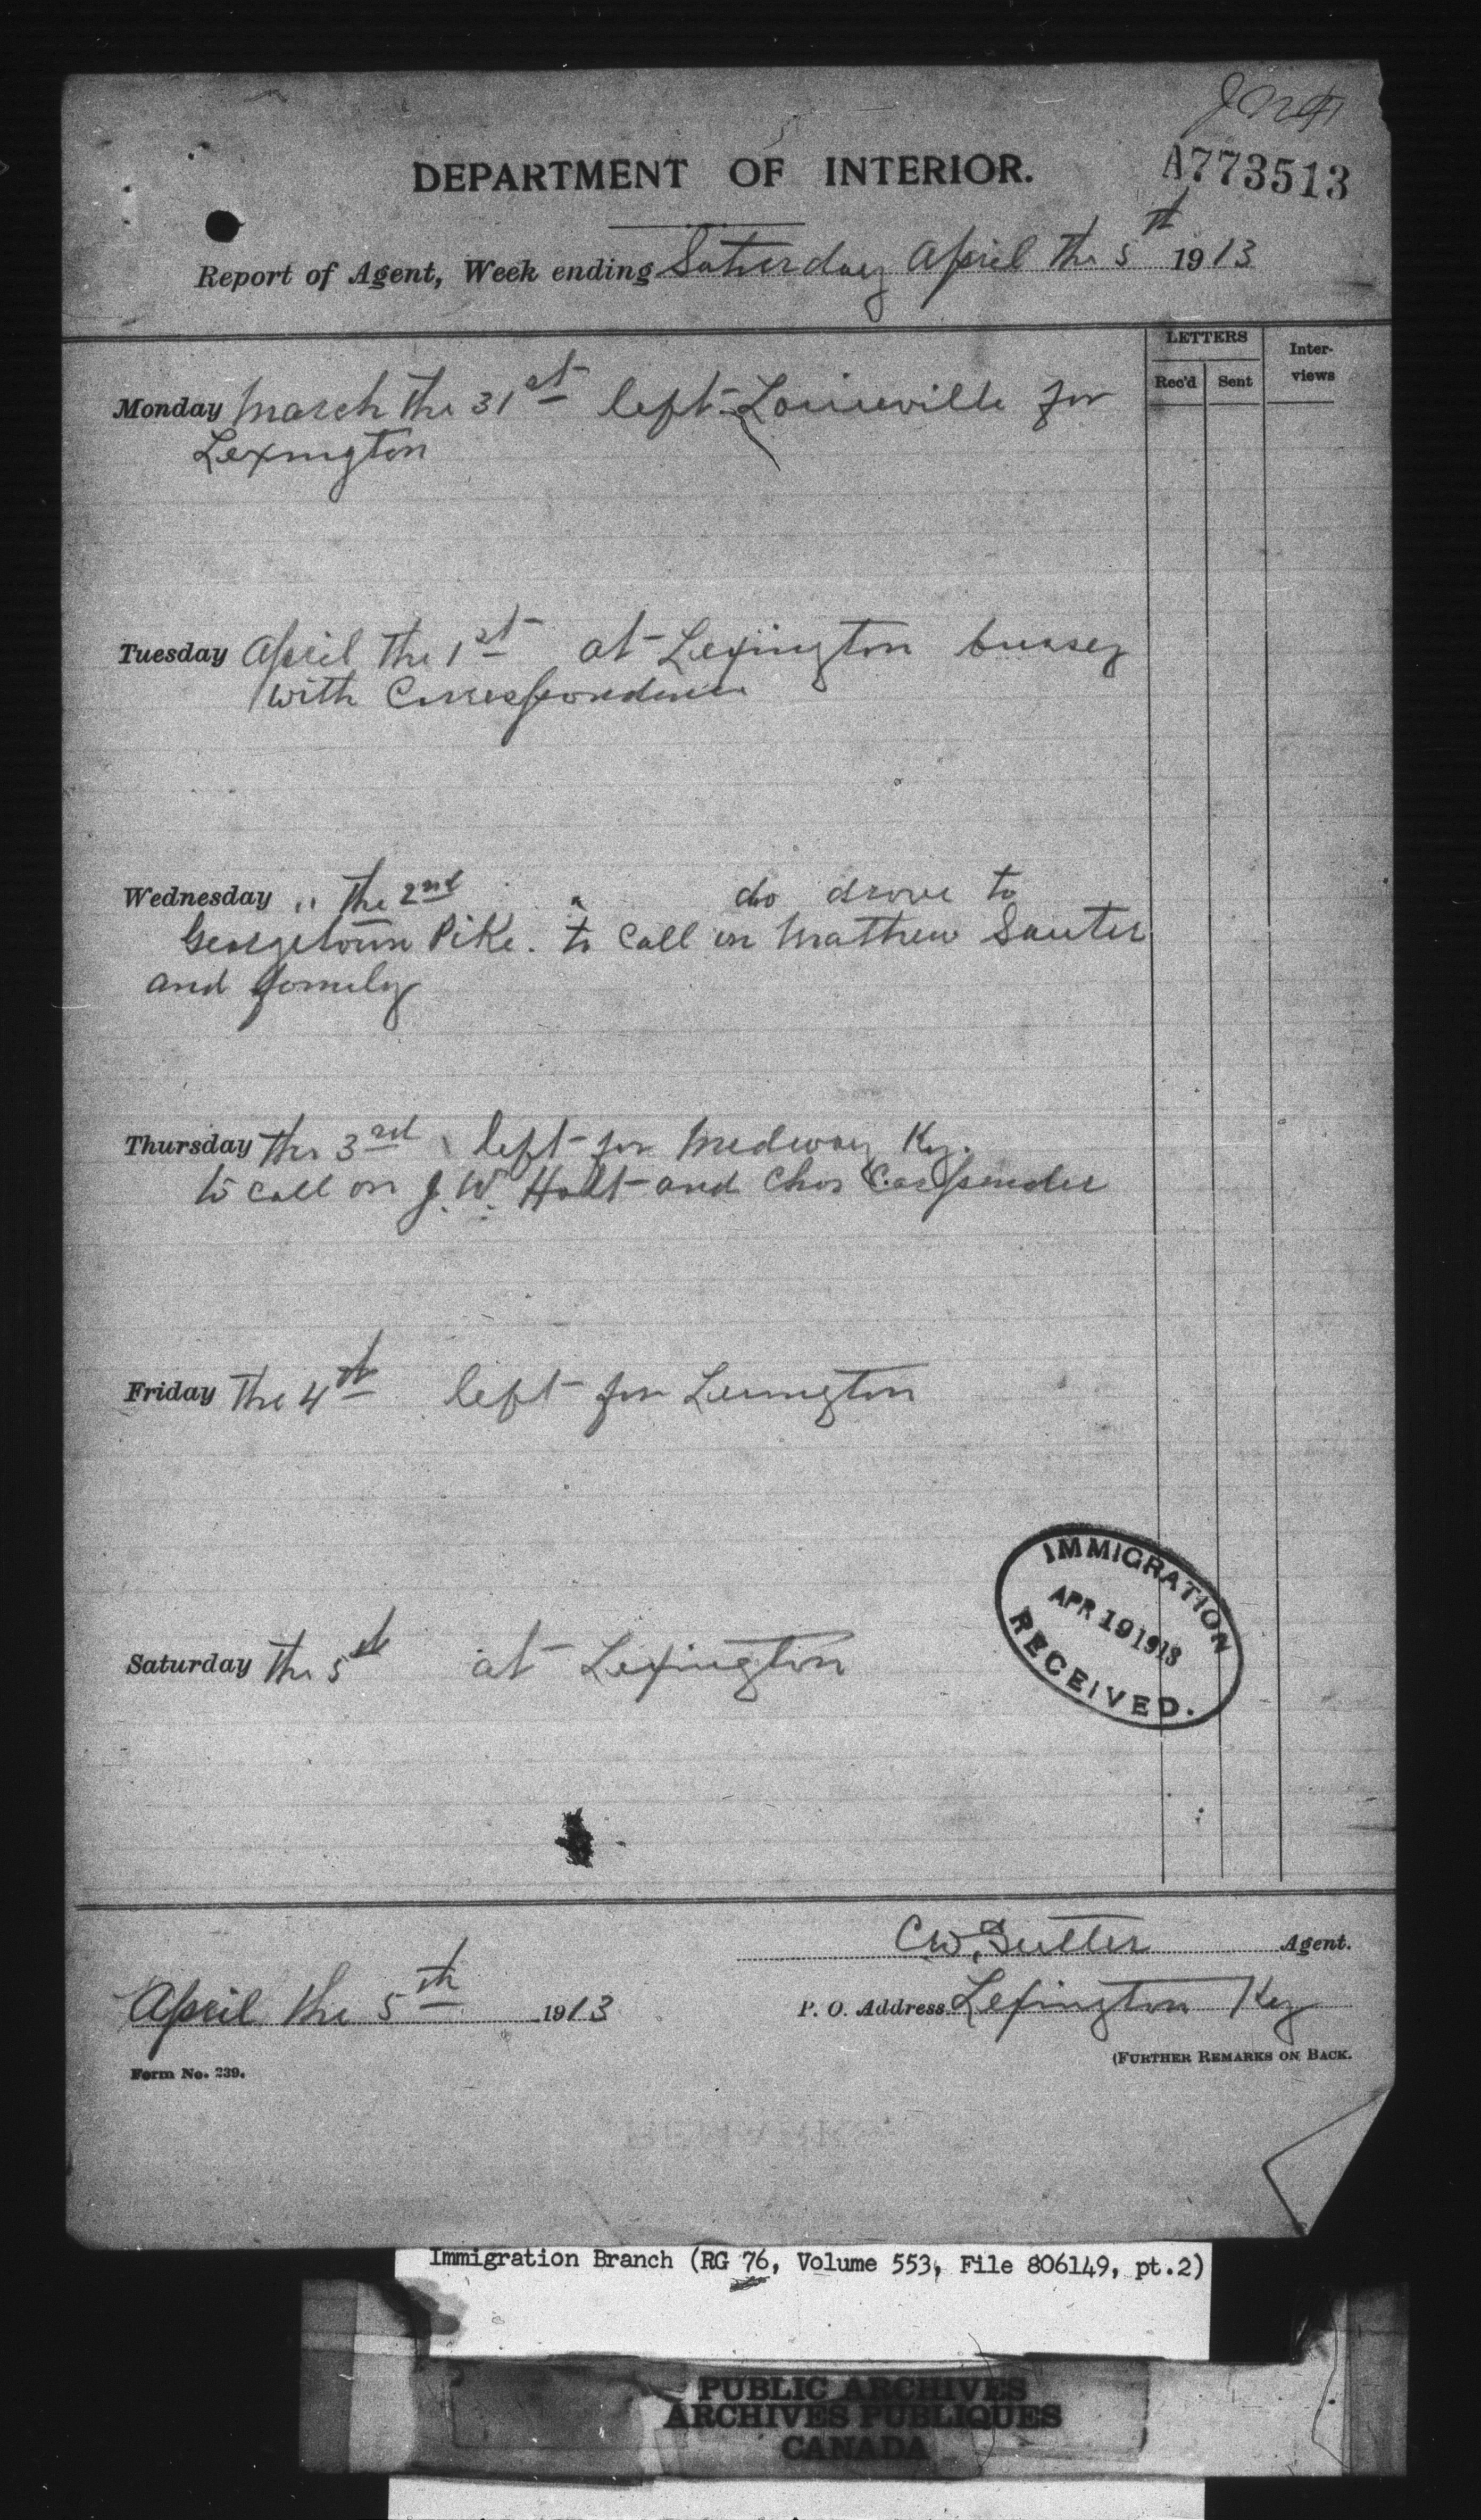 DEPARTMENT OF INTERIOR.
A773513
Report of Agent, Week ending Saturday April the 5th 1913
LETTERS
Rec'd Sent
Inter-
views
Monday March the 31st left Louisville for
Lexington
Tuesday April the 1st at Lexington bussey
with Correspondence
Wednesday " the 2nd " do drove to
Georgetown Pike. to Call on Matthew Sauter
and family
Thursday the 3rd left for Medway Ky.
to call on J. W. Holt and Chas Carpender
Friday the 4th left for Lexington
Saturday the 5th at Lexington
IMMIGRATION
APR 10 1913
RECEIVED.
C.W. Sutter Agent.
April the 5th 1913
P. O. Address Lexington Ky
(FURTHER REMARKS ON BACK.
Form No. 239.
Immigration Branch (RG 76, Volume 553, File 806149, pt.2)
PUBLIC ARCHIVES
ARCHIVES PUBLIQUES
CANADA